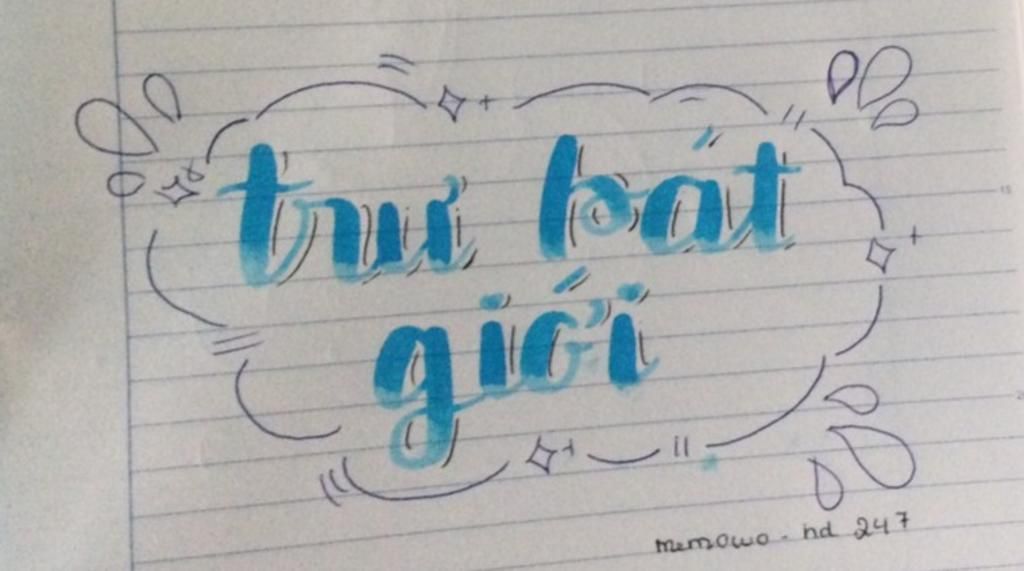 trư bát
giới
memowo - nd 247